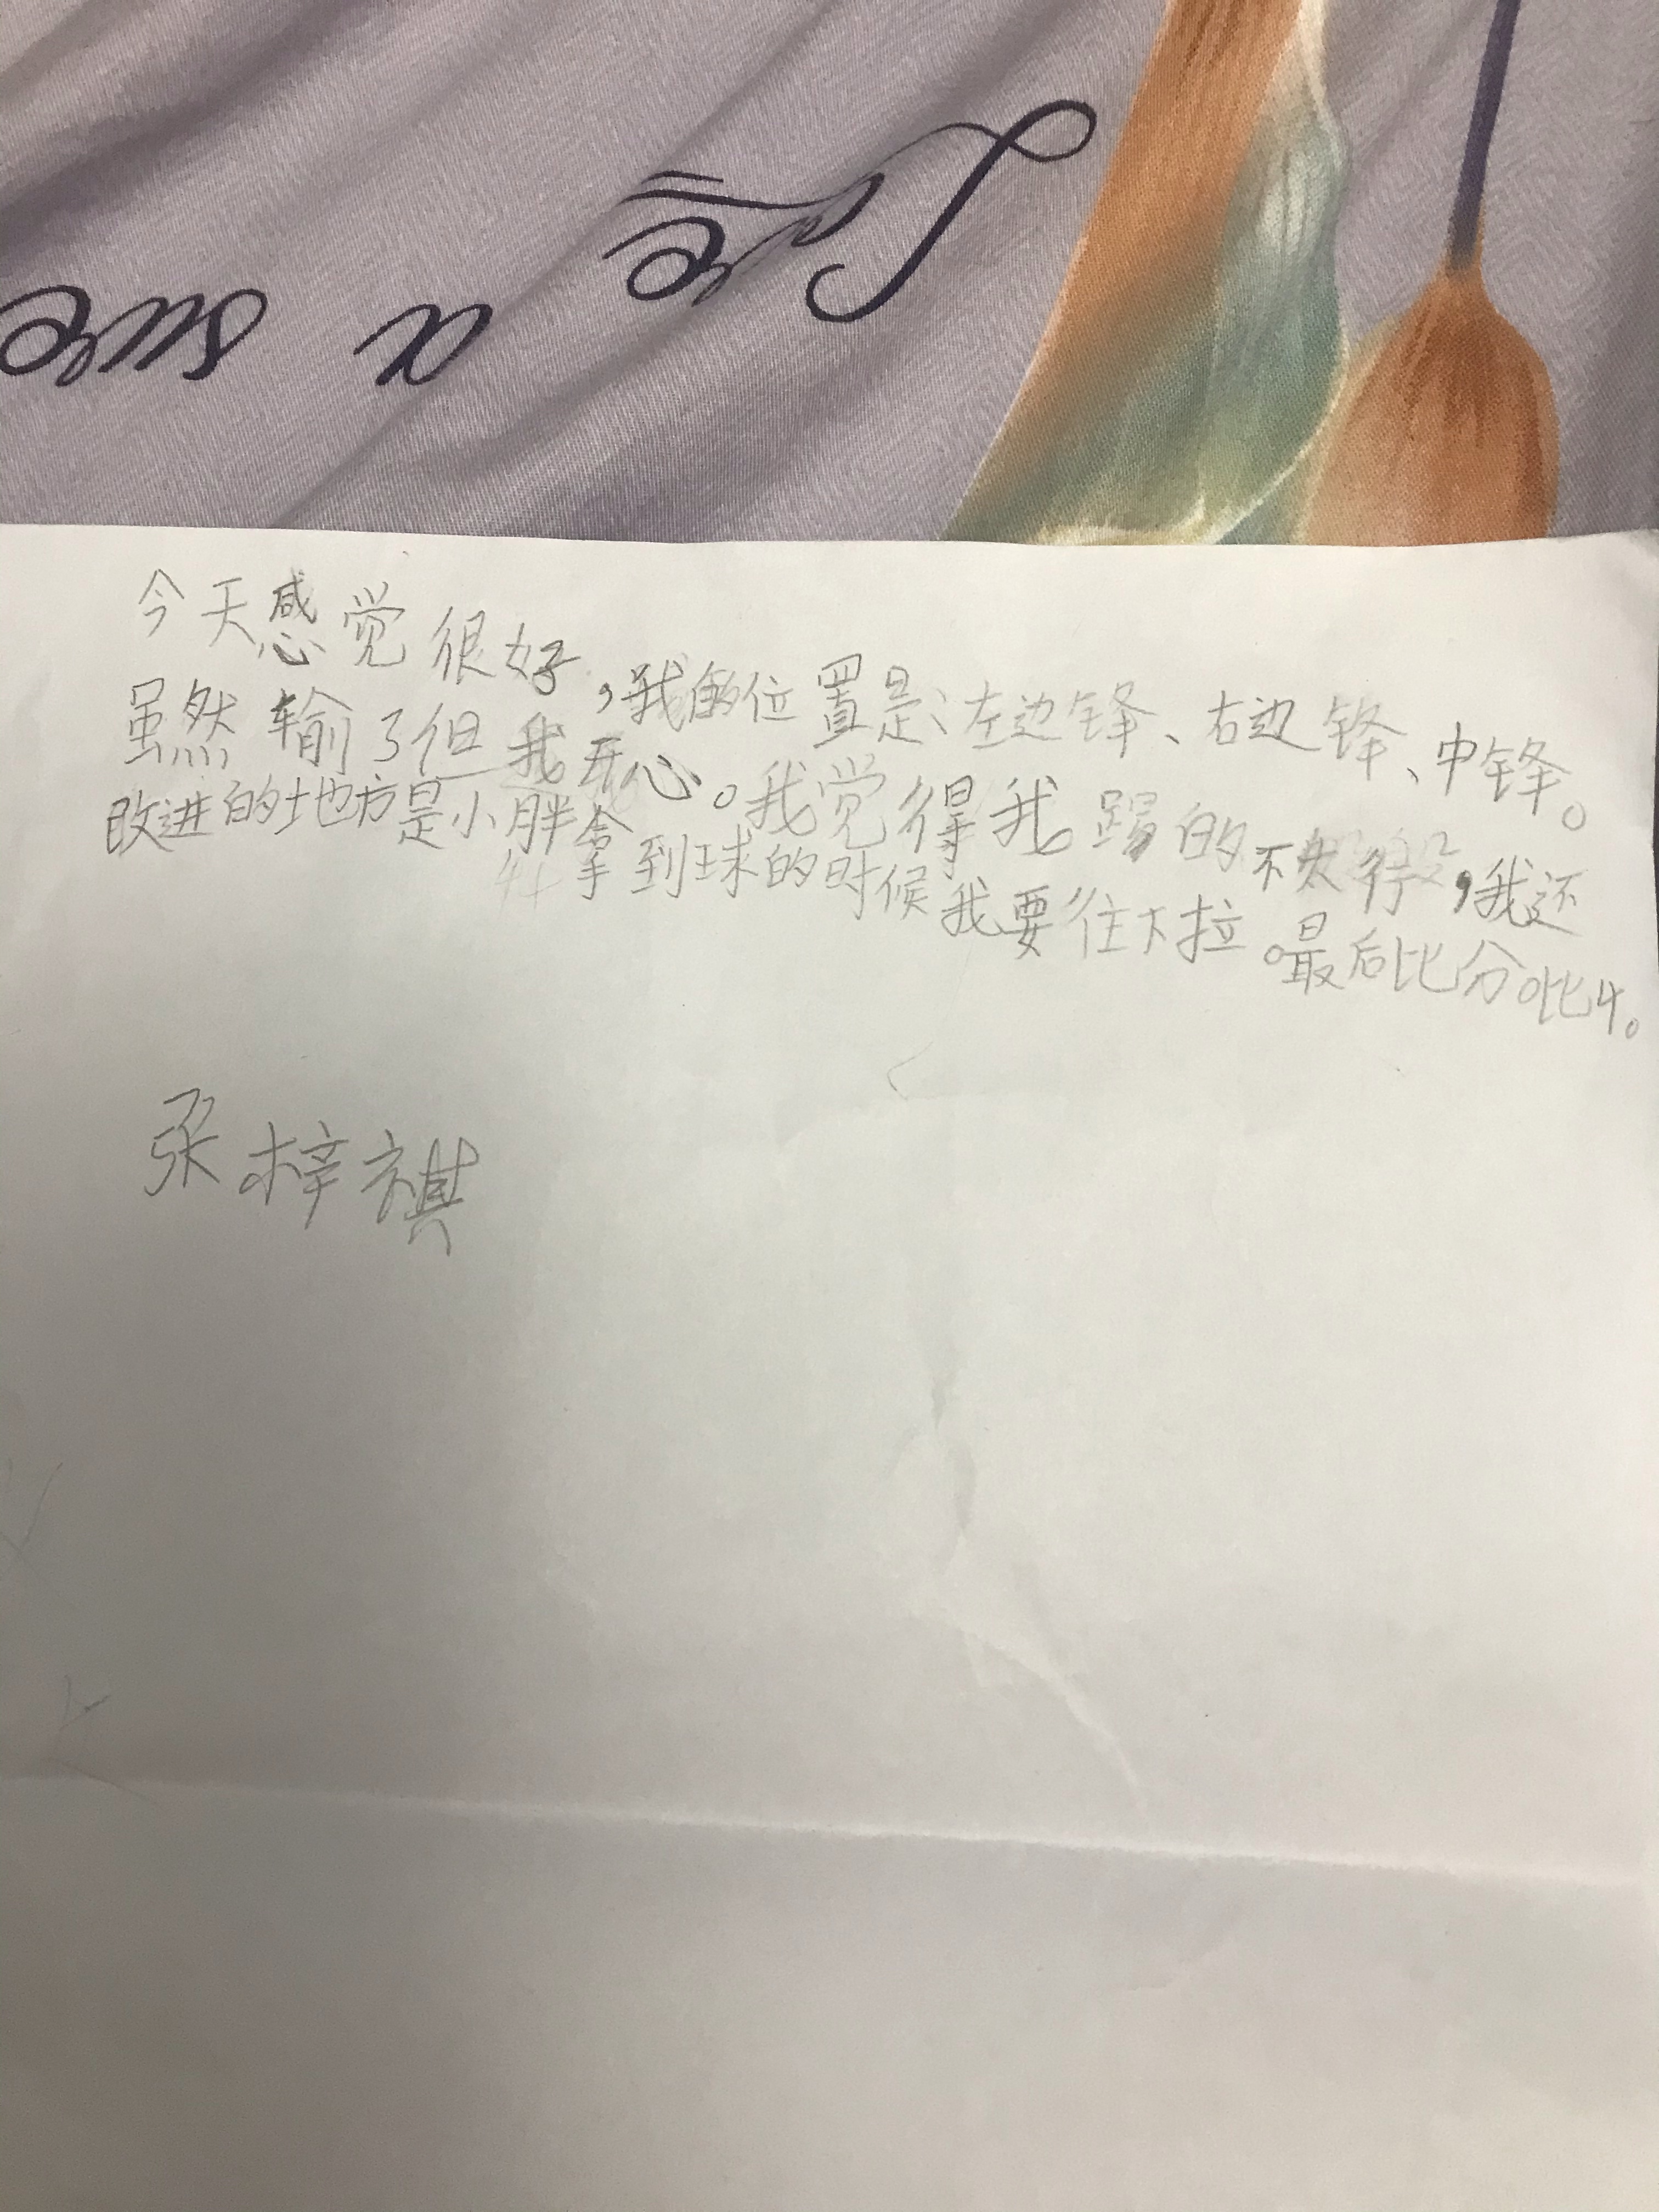 Love
a
sure
今天感觉很好,我的位置是:左边锋、右边锋、中锋。
虽然输了但我开心。我觉得我踢的不太行,我还
改进的地方是小胖拿到球的时候我要往下拉。最后比分0比4。
张梓祺